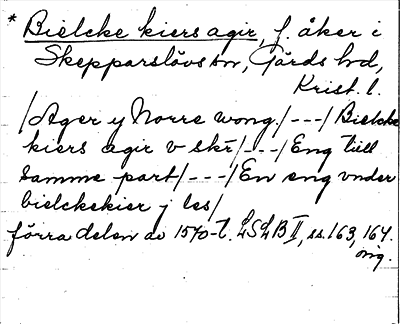 * Bielcke kiers agir, f. åker i
Skepparslövs sn, Gärds hd,
Krist. l.
/Ager y Norre wong/---/Bielcke
kiers agir v skr/---/Eng till
samme part/---/En eng vnder
bielckekier j les/
förra delen av 1570-t. LSLB II, ss. 163, 164.
orig.